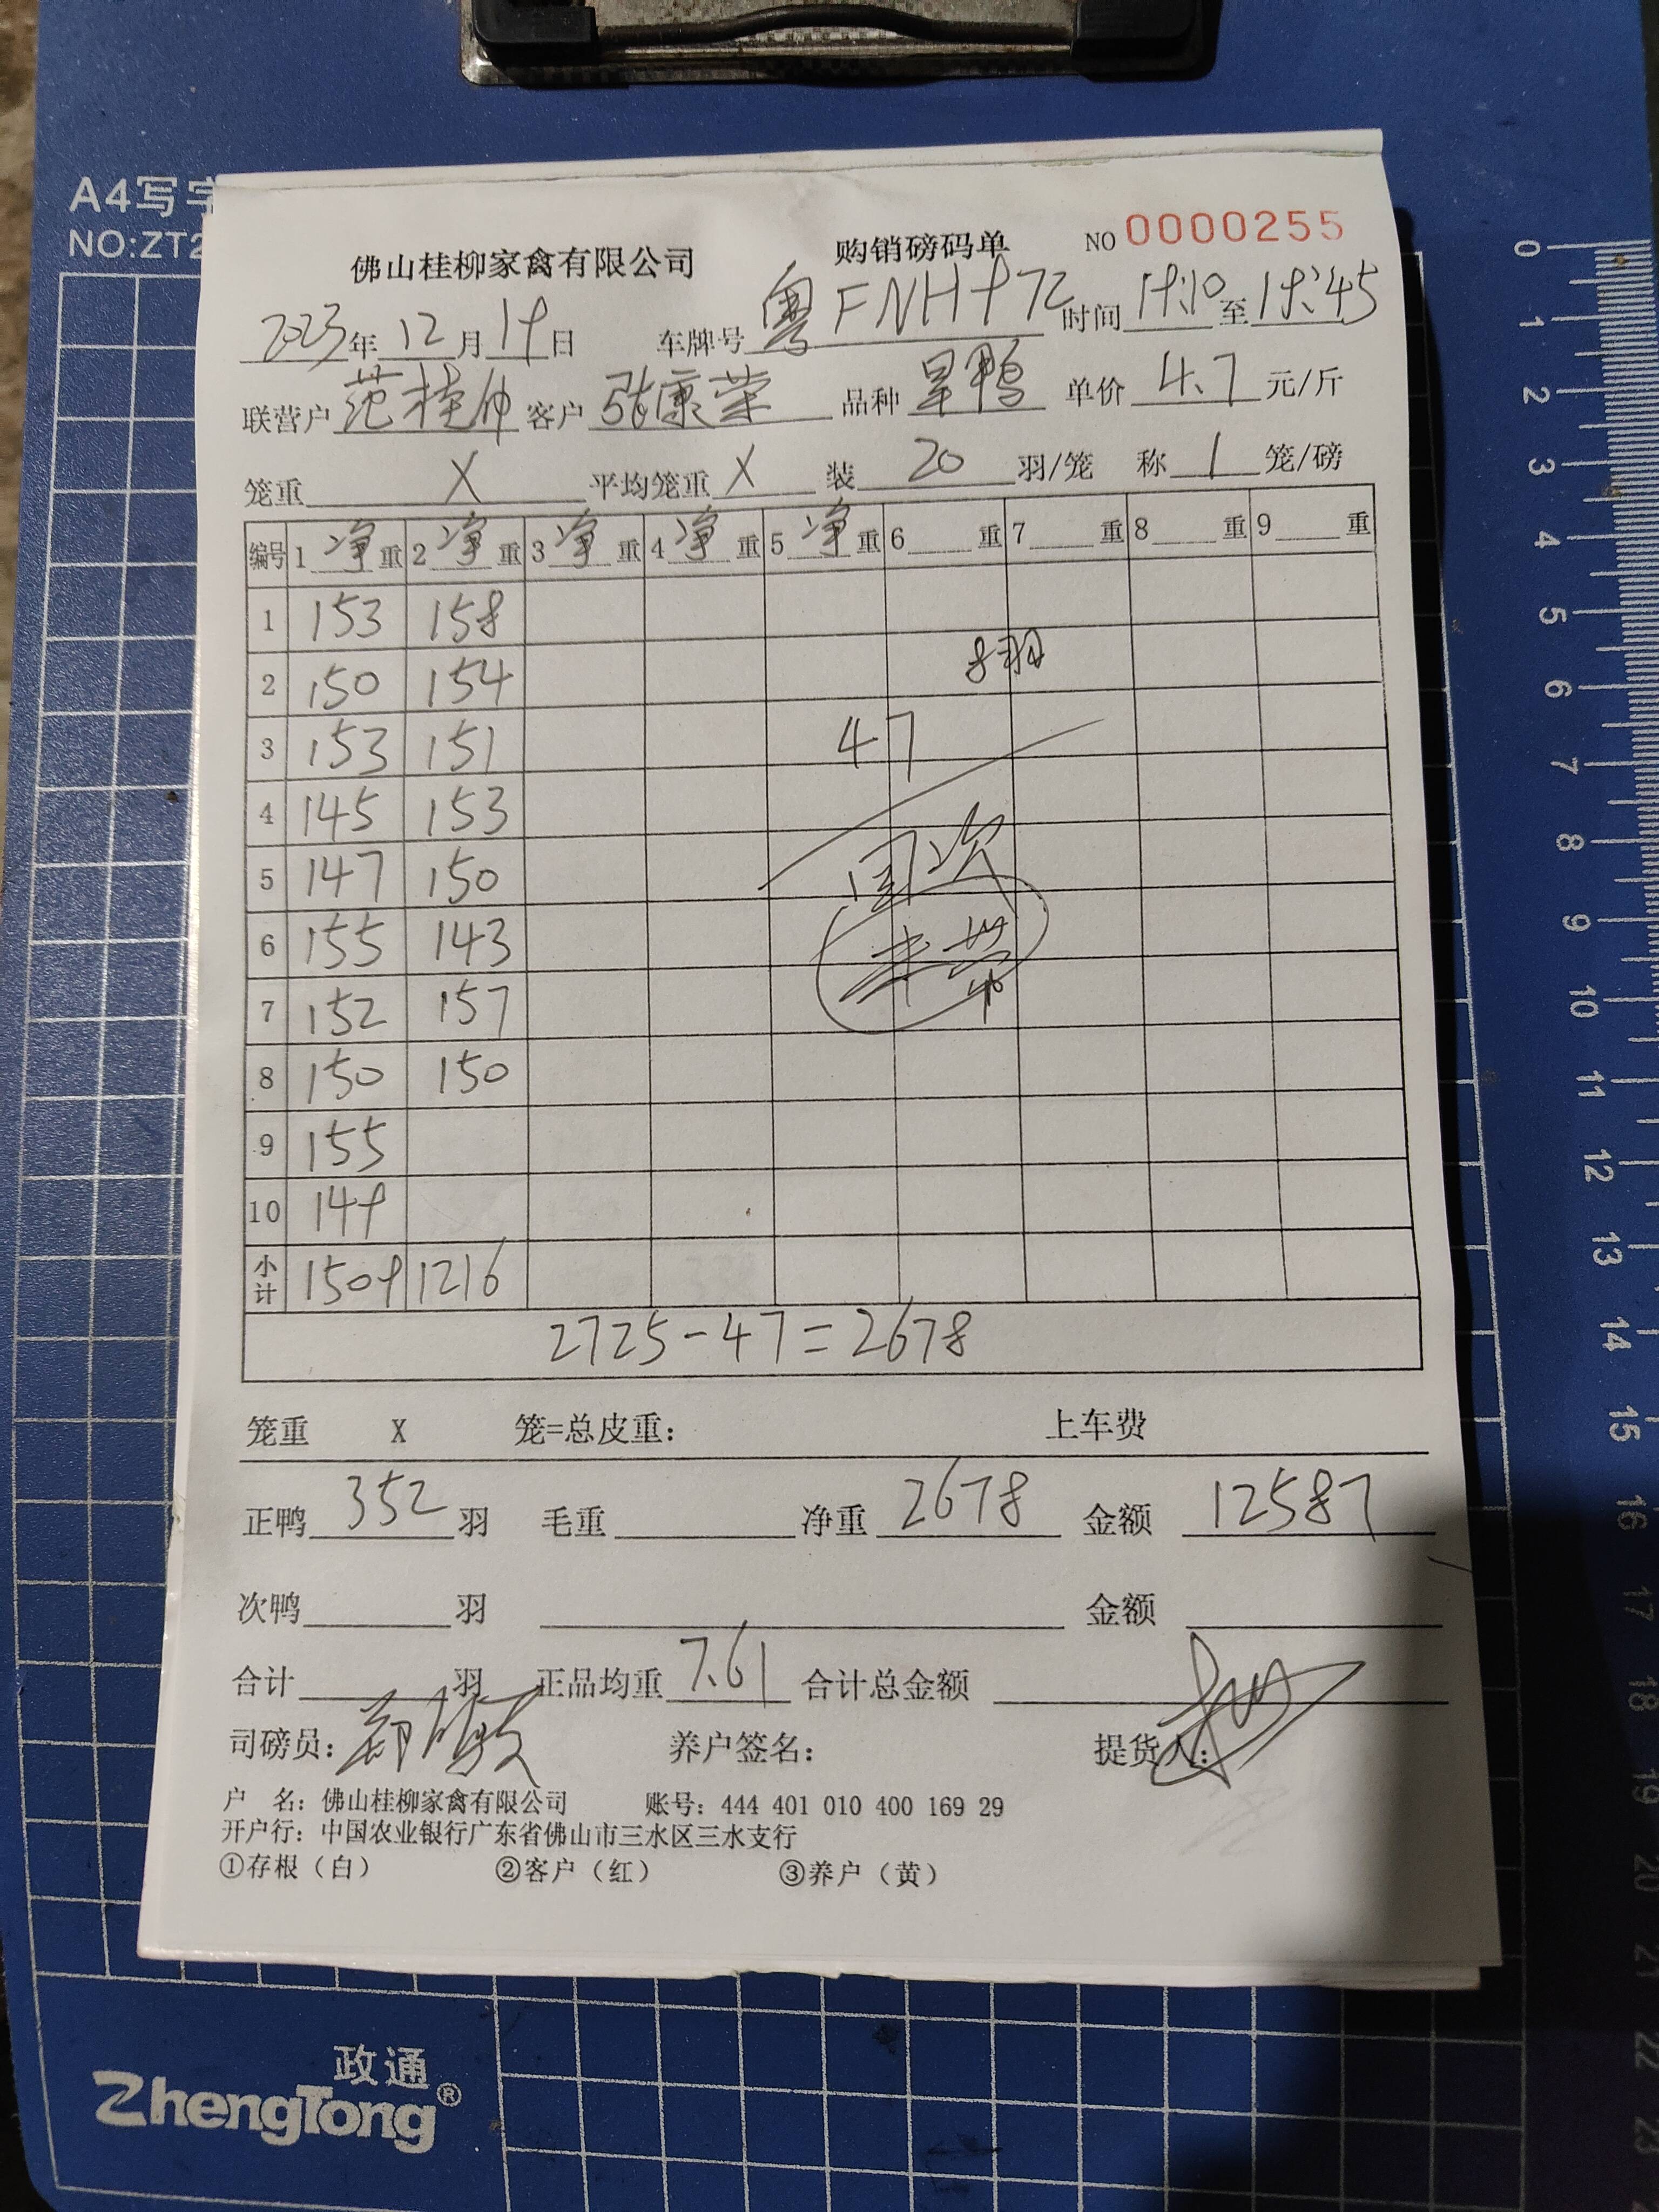 A4写字
NO:ZT2
佛山桂柳家禽有限公司 购销磅码单 NO 0000255
2023年12月19日 车牌号 粤FNH972 时间 19:10 至 19:45
联营户 范桂 客户 张康荣 品种 旱鸭 单价 4.7 元/斤
笼重 X 平均笼重 X 装 20 羽/笼 称 1 笼/磅
编号 1 净 重 2 净 重 3 净 重 4 净 重 5 净 重 6 重 7 重 8 重 9 重
1 153 158
2 150 154 8羽
3 153 151 47
4 145 153
5 147 150 回次
6 155 143 未带
7 152 157
8 150 150
9 155
10 149
小计 1509 1216
2725-47=2678
笼重 X 笼=总皮重: 上车费
正鸭 352 羽 毛重 净重 2678 金额 12587
次鸭 羽 金额
合计 羽 正品均重 7.61 合计总金额
司磅员: 养户签名: 提货人:
户 名: 佛山桂柳家禽有限公司 账号: 444 401 010 400 169 29
开户行: 中国农业银行广东省佛山市三水区三水支行
①存根(白) ②客户(红) ③养户(黄)
政通
ZhengTong®
0
1
2
3
4
5
6
7
8
9
10
11
12
13
14
15
16
17
18
19
20
21
22
23